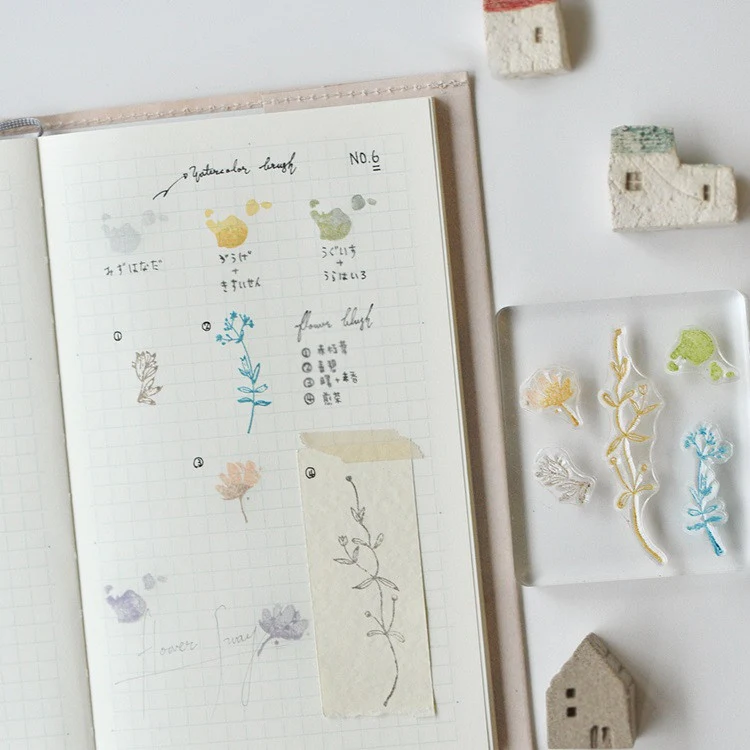 Watercolor brush
NO.6
みずはなだ
ぞうげ
+
きすいせん
うぐいす
+
うらはいろ
① ②
flower blush
①
②
③ +
④
③ ④
flower Sway